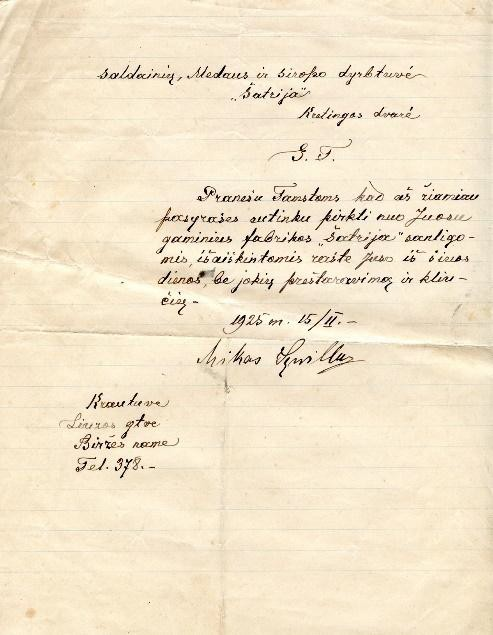 saldainių, Medaus ir siropo dyrbtuvė
„Šatrija"
Kretingos dvarė
G. T.
Pranešu Tamstoms kad aš žiamiau
pasyrašęs sutinku pirkti nuo Juosu
gaminius fabrikos „Šatrija" santigo-
mis, išaiškintomis rašte Juso iš šios
dienos, be jokių preštaravimo ir kliu-
čių -
1925 m. 15/II. -
Mikas
Krautuvė
Liuros gtvė
Biržės name
Tel. 378. -